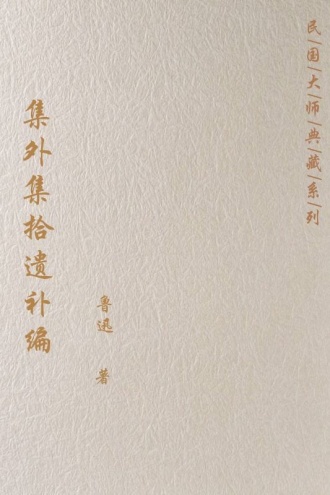 民国大师典藏系列
集外集拾遗补编
鲁迅 著